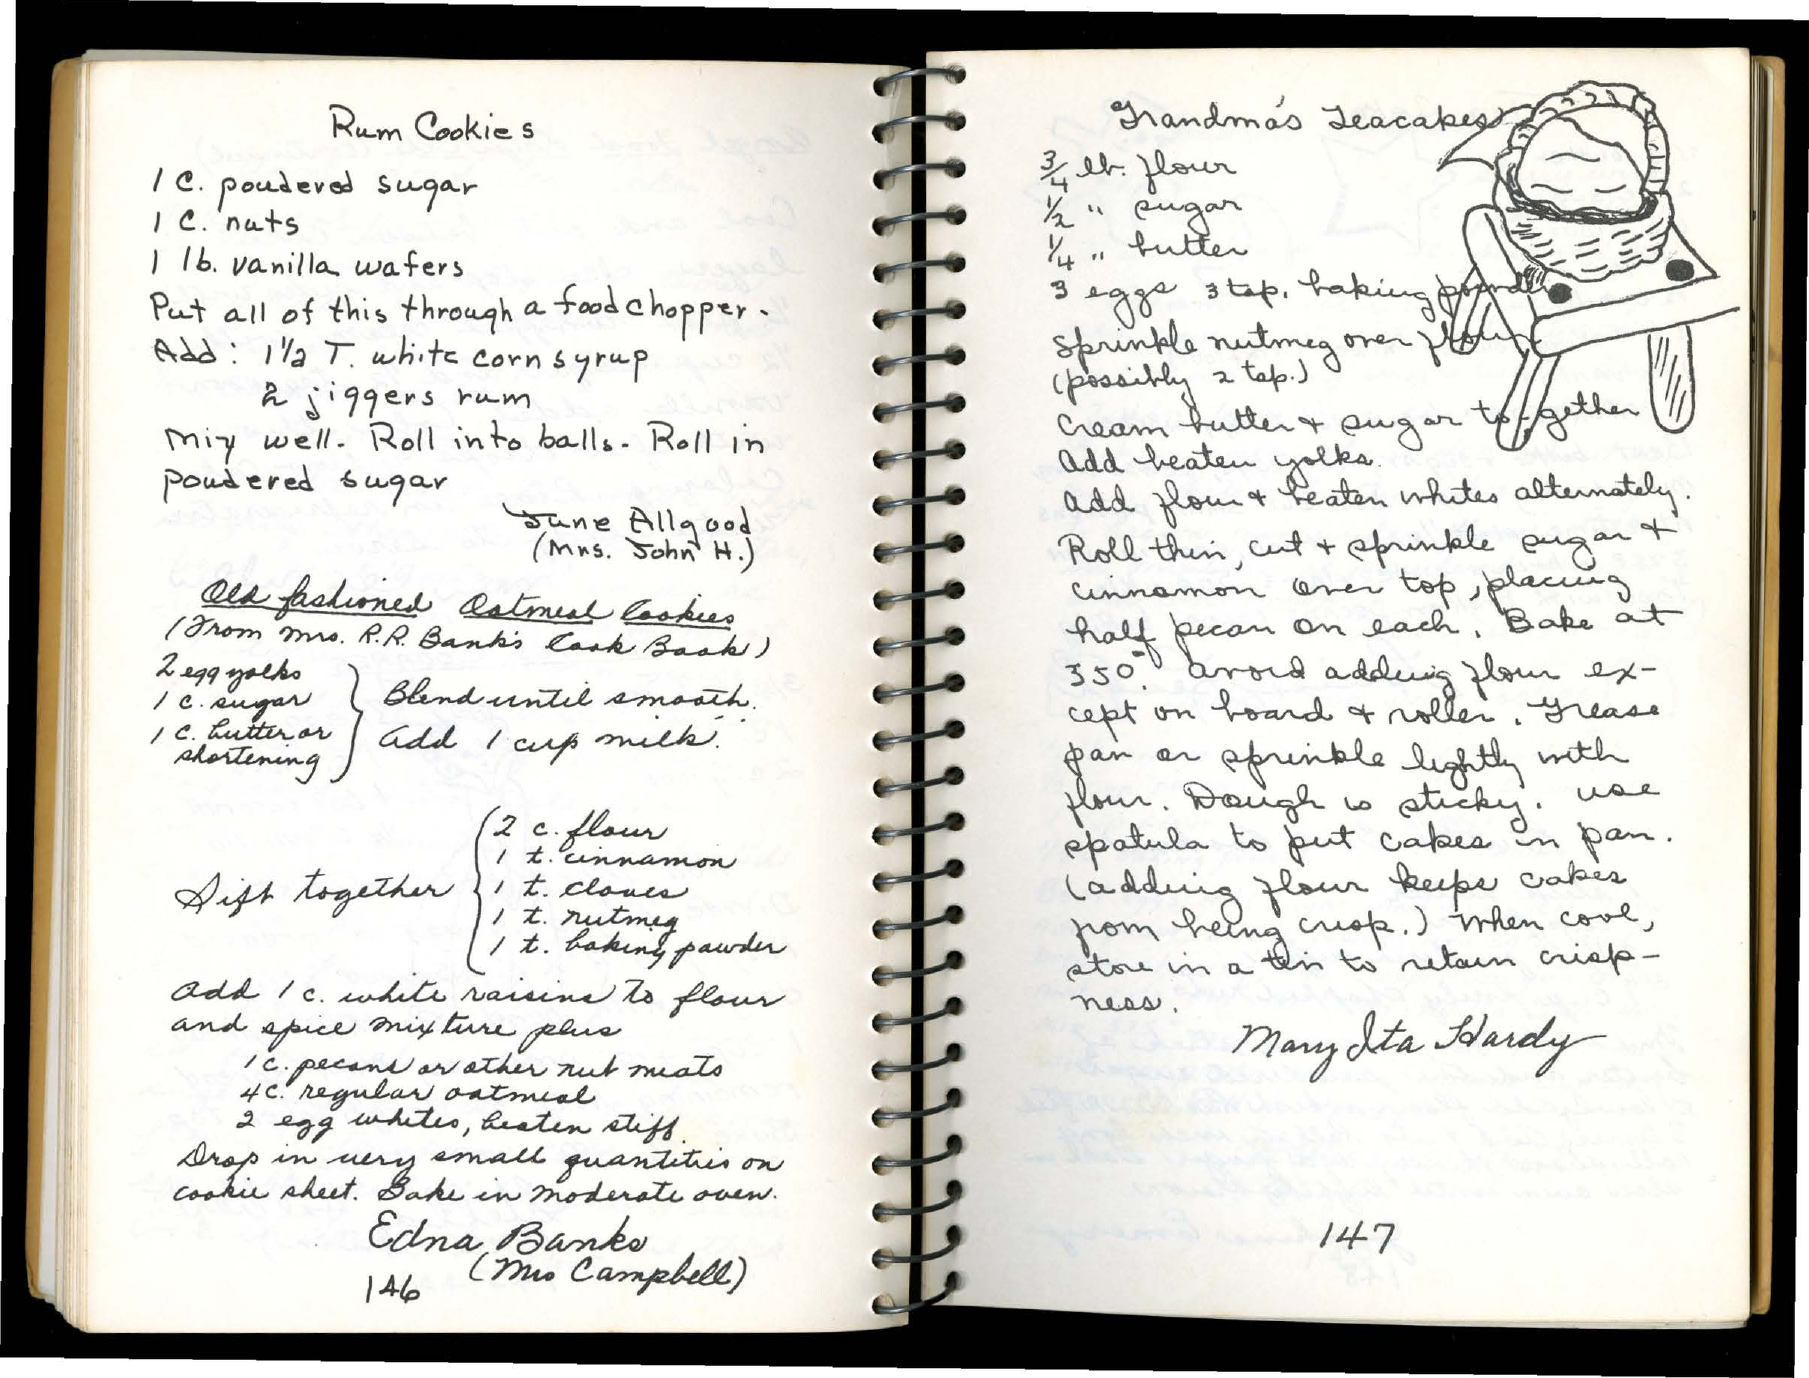 Rum Cookies
1 c. powdered sugar
1 c. nuts
1 lb. vanilla wafers
Put all of this through a food chopper.
Add: 1½ T. white corn syrup
2 jiggers rum
Mix well. Roll into balls. Roll in
powdered sugar
June Allgood
(Mrs. John H.)
Old fashioned Oatmeal Cookies
(From Mrs. R.R. Bank's Cook Book)
2 egg yolks
1 c. sugar
1 c. butter or
shortening
Blend until smooth.
Add 1 cup milk.
Sift together
2 c. flour
1 t. cinnamon
1 t. cloves
1 t. nutmeg
1 t. baking powder
Add 1 c. white raisins to flour
and spice mixture plus
1 c. pecans or other nut meats
4 c. regular oatmeal
2 egg whites, beaten stiff.
Drop in very small quantities on
cookie sheet. Bake in moderate oven.
Edna Banks
(Mrs Campbell)
146
Grandma's Teacakes
3/4 lb. flour
1/2 " sugar
1/4 " butter
3 eggs 3 tsp. baking powder
Sprinkle nutmeg over flour
(possibly 2 tsp.)
Cream butter & sugar to-gether
Add beaten yolks.
Add flour & beaten whites alternately.
Roll thin, cut & sprinkle sugar &
cinnamon over top, placing
half pecan on each. Bake at
350°. Avoid adding flour ex-
cept on board & roller. Grease
pan or sprinkle lightly with
flour. Dough is sticky. Use
spatula to put cakes in pan.
(adding flour keeps cakes
from being crisp.) When cool,
store in a tin to retain crisp-
ness.
Mary Ita Hardy
147